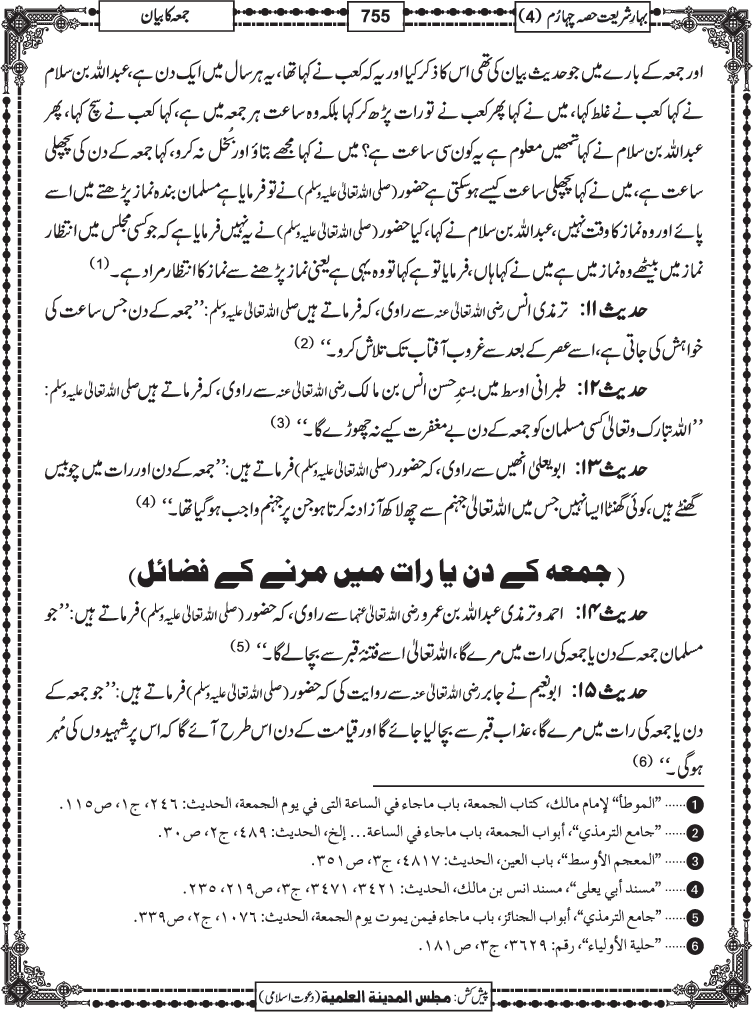 بہارِ شریعت حصہ چہارم (4)
755
جمعہ کا بیان
اور جمعہ کے بارے میں جو حدیث بیان کی تھی اس کا ذکر کیا اور یہ کہ کعب نے کہا تھا، یہ ہر سال میں ایک دن ہے، عبداللہ بن سلام
نے کہا کعب نے غلط کہا، میں نے کہا پھر کعب نے تورات پڑھ کر کہا بلکہ وہ ساعت ہر جمعہ میں ہے، کہا کعب نے سچ کہا، پھر
عبداللہ بن سلام نے کہا تمھیں معلوم ہے یہ کون سی ساعت ہے؟ میں نے کہا مجھے بتاؤ اور بُخل نہ کرو، کہا جمعہ کے دن کی پچھلی
ساعت ہے، میں نے کہا پچھلی ساعت کیسے ہوسکتی ہے حضور (صلی اللہ تعالیٰ علیہ وسلم) نے تو فرمایا ہے مسلمان بندہ نماز پڑھتے میں اسے
پائے اور وہ نماز کا وقت نہیں، عبداللہ بن سلام نے کہا، کیا حضور (صلی اللہ تعالیٰ علیہ وسلم) نے یہ نہیں فرمایا ہے کہ جو کسی مجلس میں انتظار
نماز میں بیٹھے وہ نماز میں ہے میں نے کہا ہاں، فرمایا تو ہے کہا تو وہ یہی ہے یعنی نماز پڑھنے سے نماز کا انتظار مراد ہے۔ (1)
حدیث ۱۱: ترمذی انس رضی اللہ تعالیٰ عنہ سے راوی، کہ فرماتے ہیں صلی اللہ تعالیٰ علیہ وسلم: ’’جمعہ کے دن جس ساعت کی
خواہش کی جاتی ہے، اسے عصر کے بعد سے غروب آفتاب تک تلاش کرو۔‘‘ (2)
حدیث ۱۲: طبرانی اوسط میں بسندِ حسن انس بن مالک رضی اللہ تعالیٰ عنہ سے راوی، کہ فرماتے ہیں صلی اللہ تعالیٰ علیہ وسلم:
’’اللہ تبارک و تعالیٰ کسی مسلمان کو جمعہ کے دن بے مغفرت کیے نہ چھوڑے گا۔‘‘ (3)
حدیث ۱۳: ابو یعلیٰ انھیں سے راوی، کہ حضور (صلی اللہ تعالیٰ علیہ وسلم) فرماتے ہیں: ’’جمعہ کے دن اور رات میں چوبیس
گھنٹے ہیں، کوئی گھنٹا ایسا نہیں جس میں اللہ تعالیٰ جہنم سے چھ لاکھ آزاد نہ کرتا ہو جن پر جہنم واجب ہوگیا تھا۔‘‘ (4)
(جمعہ کے دن یا رات میں مرنے کے فضائل)
حدیث ۱۴: احمد و ترمذی عبداللہ بن عمرو رضی اللہ تعالیٰ عنہما سے راوی، کہ حضور (صلی اللہ تعالیٰ علیہ وسلم) فرماتے ہیں: ’’جو
مسلمان جمعہ کے دن یا جمعہ کی رات میں مرے گا، اللہ تعالیٰ اسے فتنۂ قبر سے بچالے گا۔‘‘ (5)
حدیث ۱۵: ابو نعیم نے جابر رضی اللہ تعالیٰ عنہ سے روایت کی کہ حضور (صلی اللہ تعالیٰ علیہ وسلم) فرماتے ہیں: ’’جو جمعہ کے
دن یا جمعہ کی رات میں مرے گا، عذاب قبر سے بچا لیا جائے گا اور قیامت کے دن اس طرح آئے گا کہ اس پر شہیدوں کی مُہر
ہوگی۔‘‘ (6)
1 ...... ”الموطأ“ لإمام مالك، كتاب الجمعة، باب ماجاء في الساعة التى في يوم الجمعة، الحديث: ٢٤٦، ج١، ص١١٥.
2 ...... ”جامع الترمذي“، أبواب الجمعة، باب ماجاء في الساعة... إلخ، الحديث: ٤٨٩، ج٢، ص٣٠.
3 ...... ”المعجم الأوسط“، باب العين، الحديث: ٤٨١٧، ج٣، ص٣٥١.
4 ...... ”مسند أبي يعلى“، مسند انس بن مالك، الحديث: ٣٤٢١، ٣٤٧١، ج٣، ص٢١٩، ٢٣٥.
5 ...... ”جامع الترمذي“، أبواب الجنائز، باب ماجاء فيمن يموت يوم الجمعة، الحديث: ١٠٧٦، ج٢، ص٣٣٩.
6 ...... ”حلية الأولياء“، رقم: ٣٦٢٩، ج٣، ص١٨١.
پیش کش: مجلس المدينة العلمية (دعوتِ اسلامی)